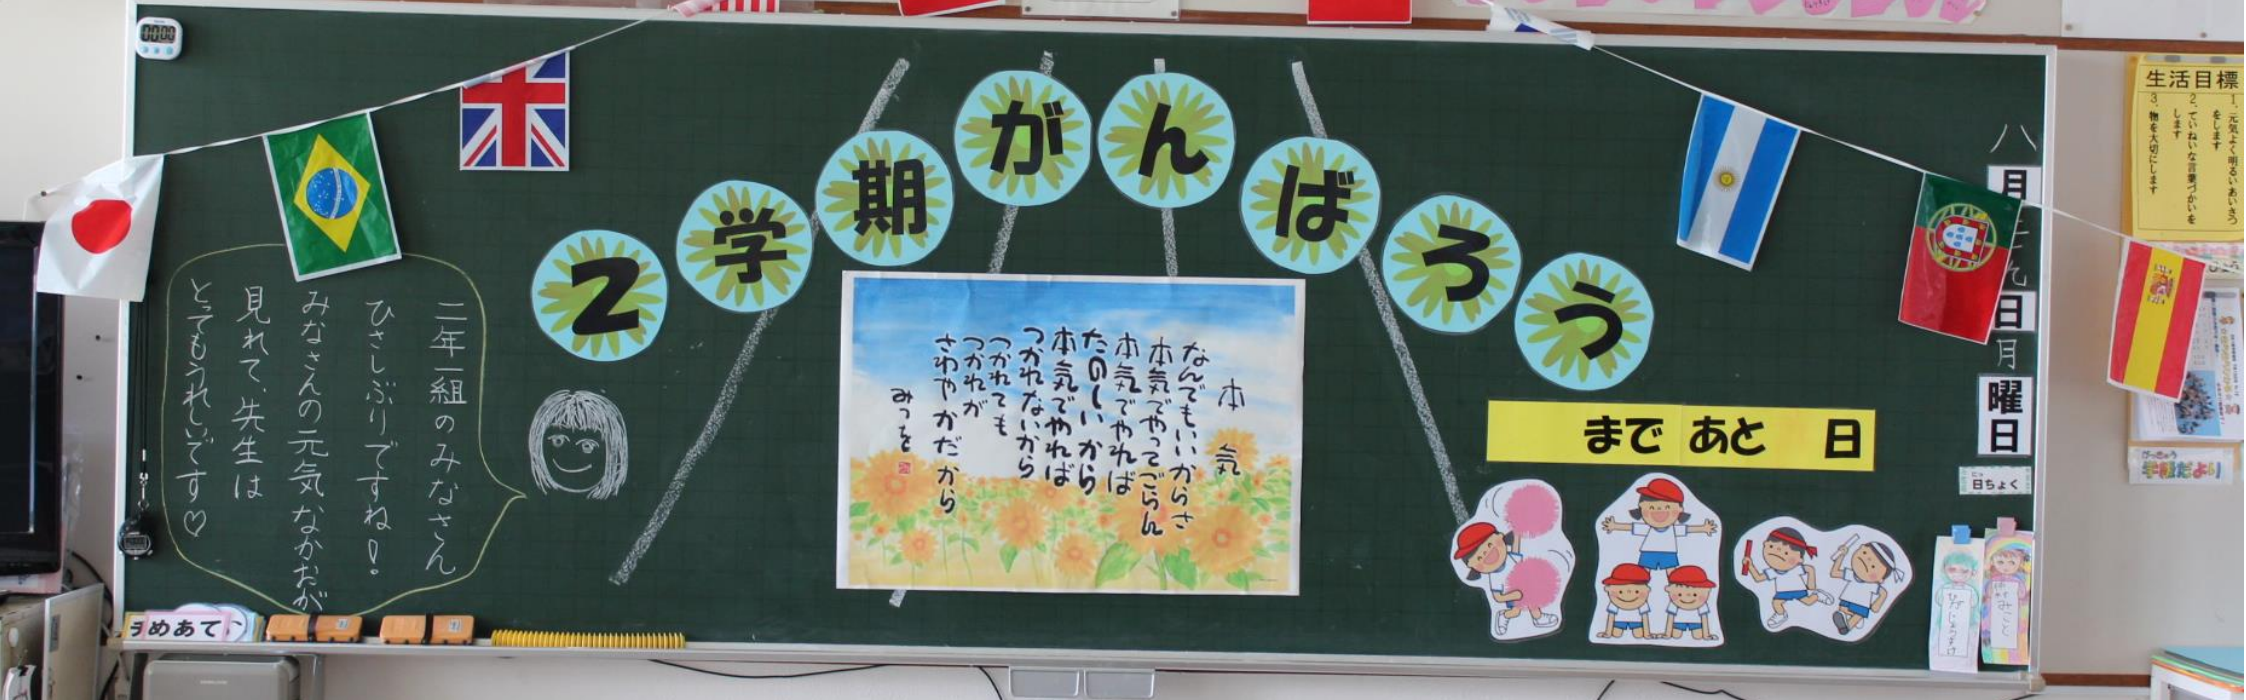 2学期がんばろう
二年一組のみなさん
ひさしぶりですね!
みなさんの元気なかおが
見れて、先生は
とってもうれしいです♡
本気
なんでもいいからさ
本気でやってごらん
本気でやれば
たのしいから
本気でやれば
つかれないから
つかれても
つかれが
さわやかだから
みつを
まで あと 日
八月二九日月曜日
日ちょく
めあて
生活目標
1. 元気よく明るいあいさつ
をします
2. ていねいな言葉づかいを
します
3. 物を大切にします
がっきゅう
学級だより